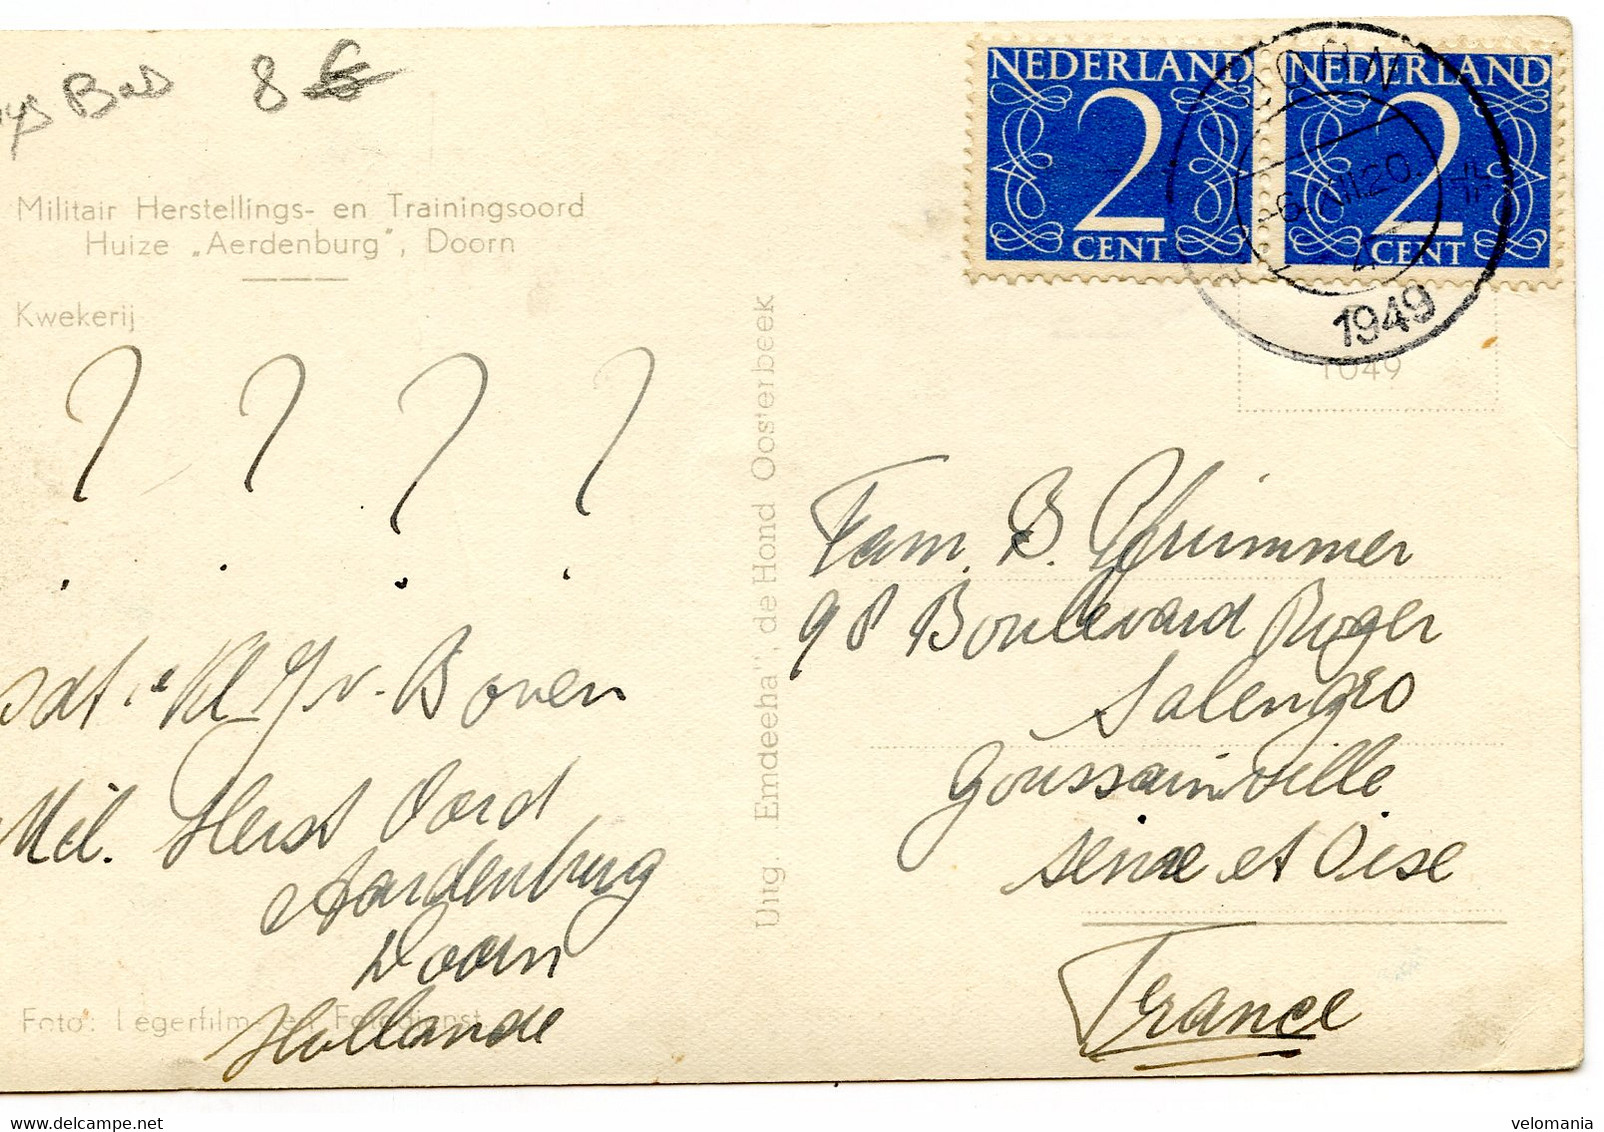 ys Bas 8 €
Militair Herstellings- en Trainingsoord
Huize „Aerdenburg", Doorn
Kwekerij
? ? ? ?
sdt. Kl v. Boven
Mil. Herst Oord
Aardenburg
Doorn
Hollande
Foto: Legerfilm- en Fotodienst
Uitg. „Emdeeha", de Hond Oosterbeek
NEDERLAND
2
CENT
NEDERLAND
2
CENT
DOORN
-6.XII.20.
1949
1049
Fam. B. Pfrimmer
98 Boulevard Roger
Salengro
Goussainville
Seine et Oise
France
velomania